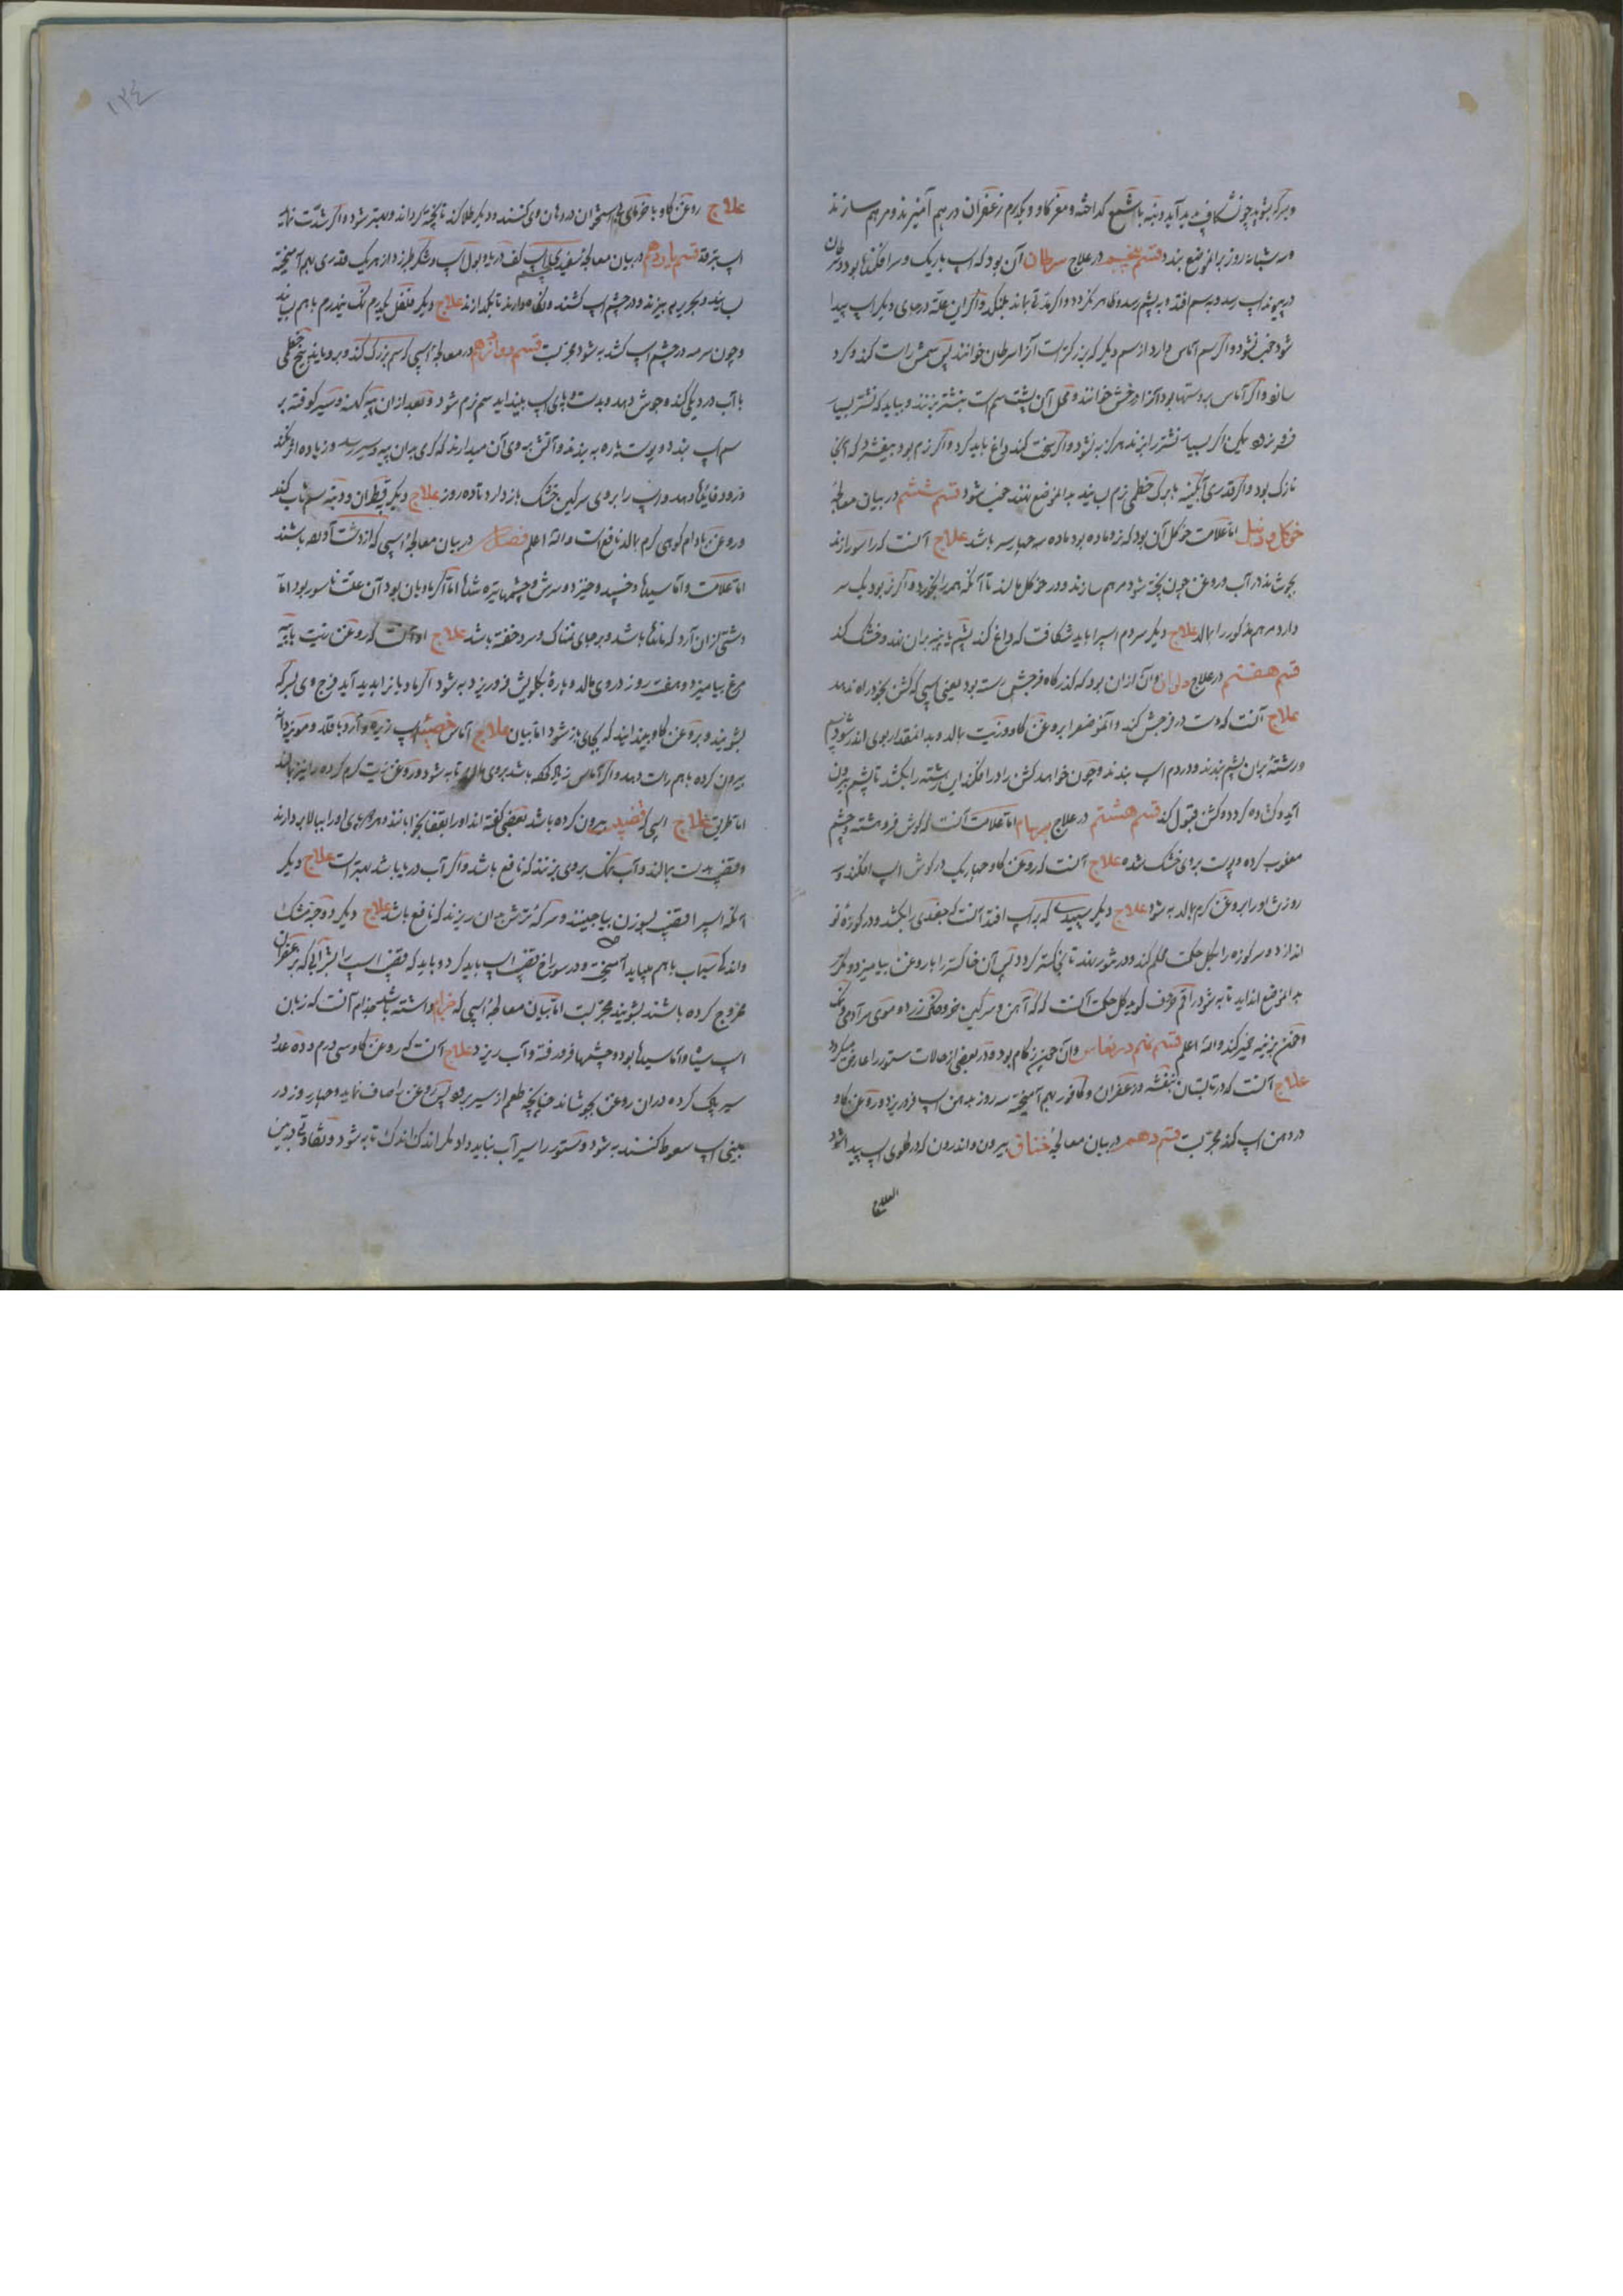 وسرکه بشوید چون شکاف پدید آید دنبه با شمع کداخته و مغز کاو و یکدرم زعفران در هم آمیزند و مرهم سازند
وسه شبانه روز برانموضع بندد قسم پنجم در علاج سرطان آن بود که اسپ باریک و سرافکنده بود و سرطان
در پیوند اسپ رسد و به سم افتد و به پشم رسد و ظاهر نکردد و اگر مدتی بماند بلنکد و اگر این علة در جای دیگر اسپ پیدا
شود خب نشود و اگر سم آماس دارد از سم دیگر که بزرکتر است آنرا سرطان خوانند پس سمش راست کند و کرد
سانو و اگر آماس بر دستها بود آنرا درخش خوانند و محل آن پشت سم است بنشتر بزنند و بباید که نشتر بسیار
فرو نرود لیکن اگر بسیار نشتر بزنند هرکز به نشود و اگر سخت کند داغ باید کرد و اگر نرم بود بیفشرد که آنجا
نازک بود و اگر قدری آبکینه با برک خطمی نرم بسایند بدانموضع نهند خب شود قسم ششم در بیان معالجهٔ
خوکل و دنبل اما علامت خوکل آن بود که نر و ماده بود ماده سه چهار سر باشد علاج آنست که راسو را زند
بجوشاند در آب و روغن چون پخته شود مرهم سازند و در خوکل مالند تا آنکه همه را بخورد و اگر نر بود یک سر
دارد مرهم مذکور را بمالد علاج دیگر سردم اسپ را باید شکافت که داغ کند پشم یا پنبه بران نهد و خشک کند
قسم هفتم در علاج دلوان و آن ازان بود که کذرکاه فرجش بسته بود یعنی اسپی که کشن بخود راه ندهد
علاج آنست که دست در فرجش کند و آنموضع را بروغن کاو و زیت بمالد و بدانمقدار بوی اندر شود پشم
و رشتهٔ بران پشم بندند و در دم اسپ بندند و چون خواهد کشن را در افکند این رشته را بکشد تا پشم بیرون
آید و کشاده کردد و کشن قبول کند قسم هشتم در علاج بیرهام اما علامت آنست که کوش فروهشته و چشم
معیوب کرده و پوست بروی خشک شده علاج آنست که روغن کاو چهار یک در کوش اسپ افکند و سه
روز نشو را بروغن کرم بمالد به شود علاج دیگر سپیدی که بر اسپ افتد آنست که جغدی را بکشد و در کوزهٔ نو
اندازد و سر کوزه را بکل حکمت محکم کند و در تنور نهد تا خاکستر کردد پس آن خاکستر را با روغن بیامیزد و مکرر
بدانموضع انداید تا به شود راقم حروف کوید کل حکمت آنست که آهن و سرکین خر و نمک زرد و موی سر آدمی و نمک
و خون بزینه خمیر کند والله اعلم قسم نهم در نعاس و آن همچنین زکام بود و در بعضی از حالات ستور را عارض میکردد
علاج آنست که در تابستان بنفشه و زعفران و کافور بهم آمیخته سه روز بدهن اسپ فرو ریزد و روغن کاو
در دهن اسپ کند مجربست قسم دهم در بیان معالجهٔ خناق بیرون و اندرون که در کلوی اسپ پیدا شود
العلاج
۱۳۴
علاج روغن کاو با خرمای بی استخوان در دهان وی کنند و دیگر طلا کند تا پخته کرداند و بهتر شود و اگر شدت نماید
اسپ بترقد قسم یازدهم در بیان معالجهٔ سفیدی چشم اسپ کف دریا و بول اسپ و شکر طبرزد از هر یک قدری بهم آمیخته
بسایند و بحریر بیزند و در چشم اسپ کشند و نکاه دارند تا بکدازند علاج دیگر فلفل یکدرم نمک نیمدرم باهم بسایند
و چون سرمه در چشم اسپ کشد به شود مجربست قسم دوازدهم در معالجهٔ اسپی که سم بزرک کند و بروباید بیخ خطمی
با آب در دیکی کند و جوش دهد و بدست و پای اسپ بینداید سم نرم شود و بعد ازان پیه کهنه و سیر کوفته بر
سم اسپ بندد و پوست پاره به بندند و آتش بروی آن میدارند که کرمی بدان پیه و سیر رسد و زیاده اثر نکند
و زود فایدها دهد و اسپ را بروی سرکین خشک باز دارد تا ده روز علاج دیگر قطران و دنبه سم شاب کند
و روغن بادام کوهی کرم بمالد نافع است والله اعلم فصل در بیان معالجهٔ اسپی که از دشت آورده باشند
اما علامت و آماسیدها و خسپد و خیزد و سرش و چشمها تیره شدها اما اگر مادیان بود آن علت ناسور بود اما
دشتی کزان آرد که ماندها باشد و بر جای نمناک و سرد خفته باشد علاج او آنست که روغن زیت با پیه
مرغ بیامیزد و هفت روز در وی مالد و پارهٔ بکلویش فرو ریزد به شود اگر باد یا نزا پدید آید فرج وی بسرکه
بشویند و بروغن کاو بیندایند که بجای باز شود اما بیان علاج آماس خصیه اسپ زیره و آرد باقلا و مویز دانه
بیرون کرده باهم راست دهد و اگر آماس نرم کوفته باشد بروی مالد تا به شود و روغن زیت کرم کرده را نیز بمالند
اما طریق علاج اسپی که قضیب بیرون کرده باشد بعضی کفته اند او را بقفا بخوابانند و هر چهار پای او را ببالا بردارند
و قضیب بدست بمالند و آب نمک بروی بزنند که نافع باشد و اگر آب دریا باشد بهتر است علاج دیگر
آنکه اسپ را قضیب بسوزن بیاجینند و سرکهٔ ترش بدان ریزند که نافع باشد علاج دیگر دو جو مشک
و اندکی سیماب باهم بباید آمیخت و در سوراخ قضیب اسپ باید کرد و باید که قضیب اسپ را بشرابی که بزعفران
ممزوج کرده باشند بشویند مجربست اما بیان معالجهٔ اسپی که جذام داشته باشد جذام آنست که زبان
اسپ سیاه و آماسیدها بود و چشمها فرو رفته و آب ریزد علاج آنست که روغن کاو سی درم و ده عدد
سیر پاک کرده دران روغن بجوشاند چنانچه طعم از سیر برود پس روغن را صاف نماید و چهار روز در
بینی اسپ سعوط کنند به شود و ستور را سیر آب نباید داد مکر اندک اندک تا به شود و تفاوتی درین